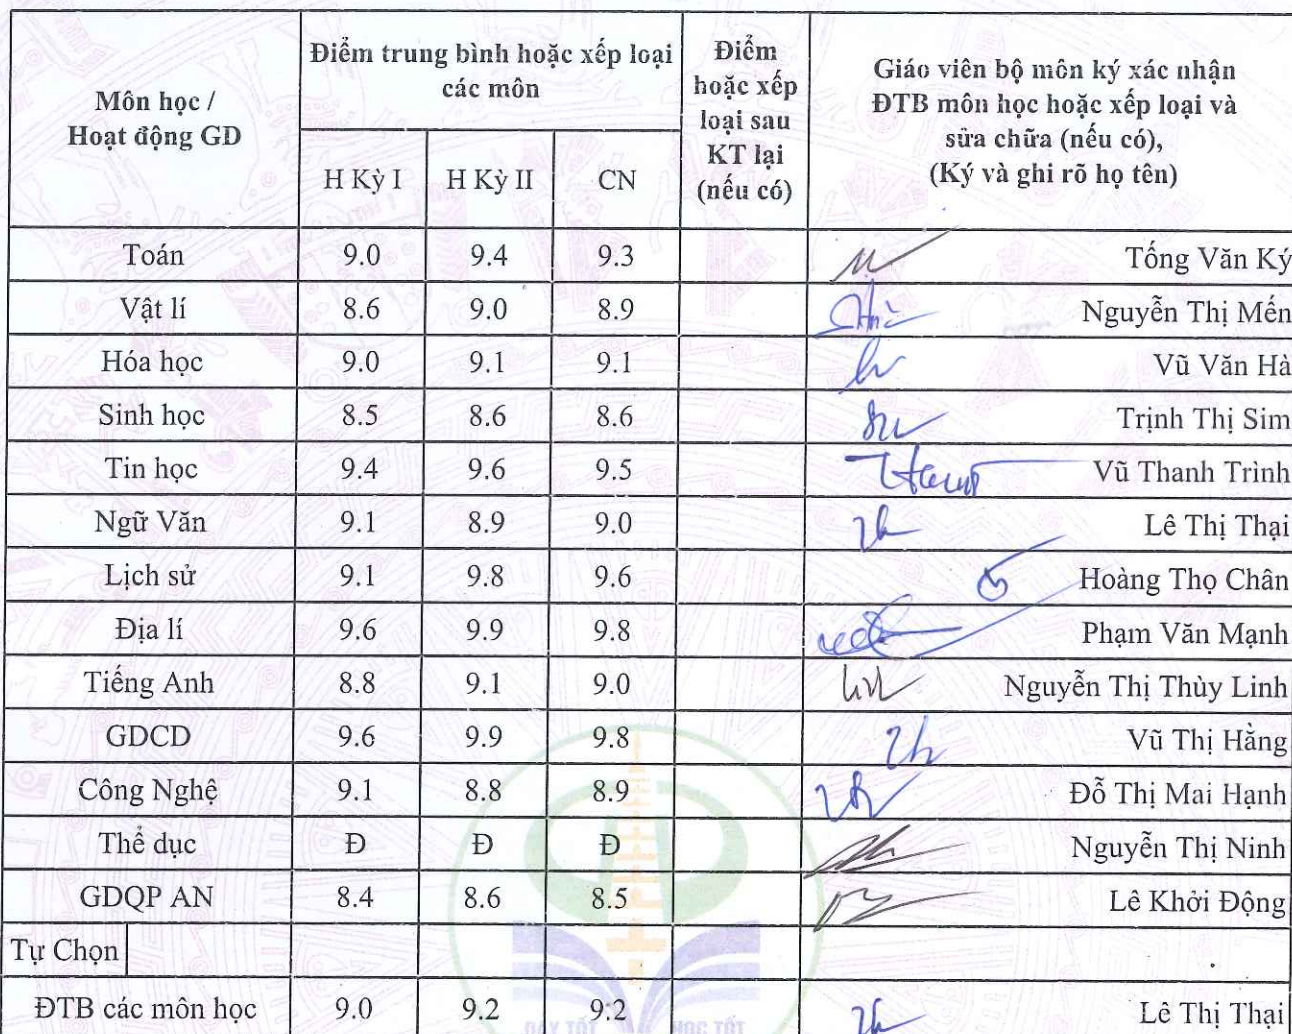 Môn học /
Hoạt động GD
Điểm trung bình hoặc xếp loại
các môn
H Kỳ I H Kỳ II CN
Điểm
hoặc xếp
loại sau
KT lại
(nếu có)
Giáo viên bộ môn ký xác nhận
ĐTB môn học hoặc xếp loại và
sửa chữa (nếu có),
(Ký và ghi rõ họ tên)
Toán 9.0 9.4 9.3 Tống Văn Ký
Vật lí 8.6 9.0 8.9 Nguyễn Thị Mến
Hóa học 9.0 9.1 9.1 Vũ Văn Hà
Sinh học 8.5 8.6 8.6 Trịnh Thị Sim
Tin học 9.4 9.6 9.5 Vũ Thanh Trình
Ngữ Văn 9.1 8.9 9.0 Lê Thị Thại
Lịch sử 9.1 9.8 9.6 Hoàng Thọ Chân
Địa lí 9.6 9.9 9.8 Phạm Văn Mạnh
Tiếng Anh 8.8 9.1 9.0 Nguyễn Thị Thùy Linh
GDCD 9.6 9.9 9.8 Vũ Thị Hằng
Công Nghệ 9.1 8.8 8.9 Đỗ Thị Mai Hạnh
Thể dục Đ Đ Đ Nguyễn Thị Ninh
GDQP AN 8.4 8.6 8.5 Lê Khởi Động
Tự Chọn
ĐTB các môn học 9.0 9.2 9.2 Lê Thị Thại
DẠY TỐT HỌC TỐT